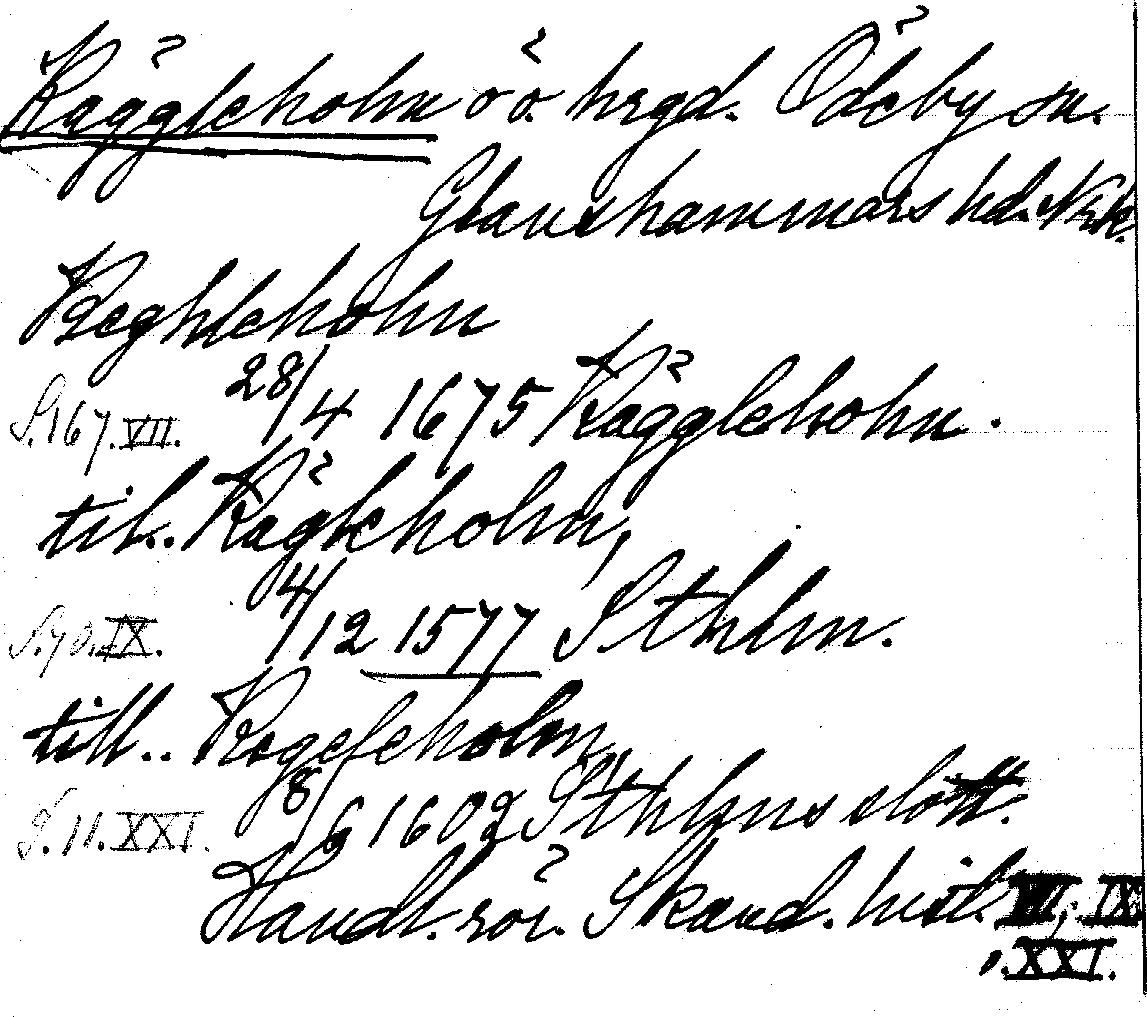 Käggleholm ö o. hrgd. Ödeby sn.
Glanshammars hd. Nrk.
Keghleholm
S. 167. VII. 28/4 1675 Kägglehohn.
till.. Kägleholm,
S. 70. IX. 4/12 1577 Sthlm.
till.. Kegeleholm,
S. 11. XXI. 8/6 1602 Sthlms slott.
Handl. rör. Skand. hist. VII, IX.
". XXI.